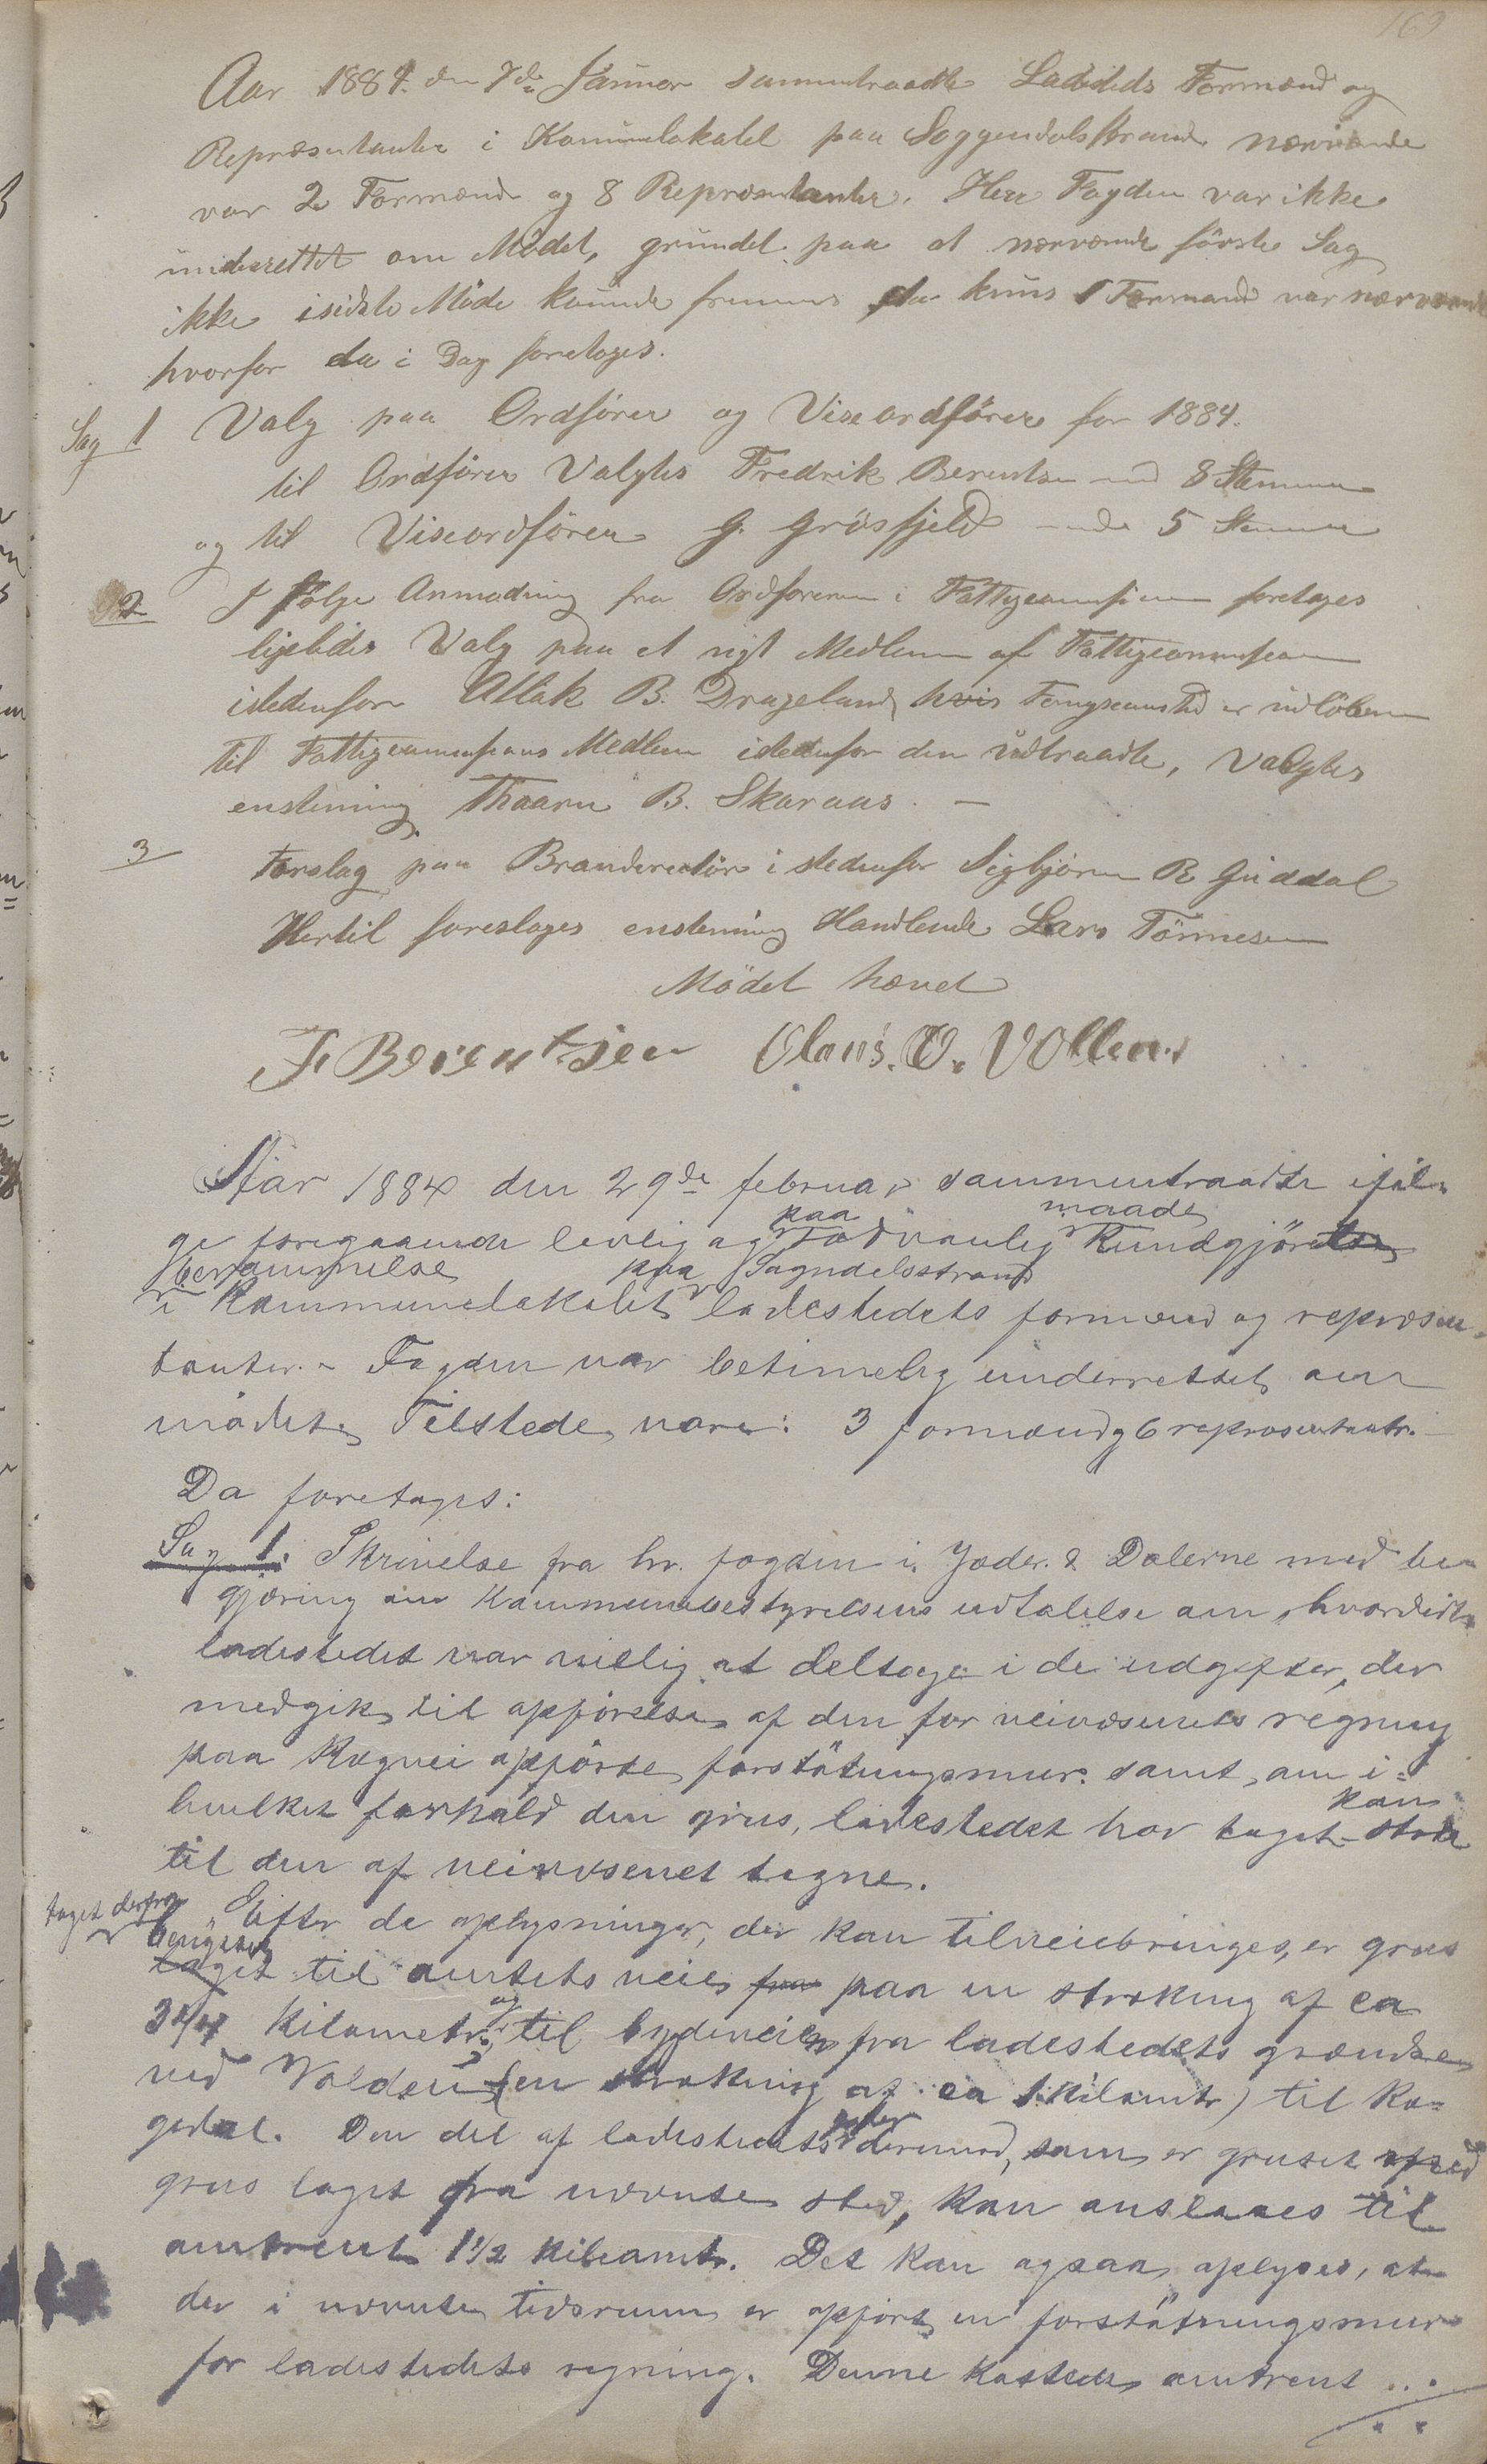 169
Aar 1884 den 7de Januar sammentraadte Ladesteds Formænd og
Repræsentanter i Komunelokalet paa Soggendalsstrand nærværende
var 2 Formænd og 8 Repræsentanter. Herr Fogden var ikke
underettet om Mødet, grundet paa at nærværende første Sag
ikke i sidste Møde kunde fremmes da kuns 1 Formand var nærværende
hvorfor da i Dag foretoges.
Sag 1 Valg paa Ordfører og Viseordfører for 1884.
til Ordfører Valgtes Fredrik Berentsen med 8 Stemmer
og til Viseordfører G. Grøsfjeld med 5 Stemmer
2 I følge Anmodning fra Ordføreren i Fattigcommisionen foretoges
ligeledes Valg paa et nyt Medlem af Fattigcommisionen
istedenfor Atlak B. Drageland, hvis Fungsionstid er udløben
til Fattigcommisions Medlem istedenfor den udtraadte, Valgtes
enstemmig Thaarn B. Skaraas. —
3 Forslag paa Branddirektør i stedenfor Sigbjørn R Guddal
Hertil foresloges enstemmig Handlende Lars Tønnesen
Mødet hævet
F Berentsen Olaus. O. Vollen.
Aar 1884 den 29de februar sammentraadte iføl-
paa maade
ge foregaaende lovlig og sædvanlig Kundgjørelse
berammelse paa Sogndalsstrand
i Kommunelokalet ladestedets formænd og repræsen-
tanter. - Fogden var betimelig underrettet om
mødet. Tilstede vare: 3 formænd og 6 repræsentanter. -
Da foretoges:
Sag 1: Skrivelse fra hr. fogden i Jæder. & Dalerne med be-
gjæring om Kommunebestyrelsens udtalelse om, hvorvidt
ladestedet var villig at deltage i de udgifter, der
medgik til opførelse af den for veivæsenets regning
paa Rægevei opførte forstøtningsmur. samt, om i
kan
hvilket forhold den grus, ladestedet har taget - staa
til den af veivæsenet tagne.
taget derfra
Efter de oplysninger, der kan tilveiebringes, er grus
benyttet
taget til amtets veie fra paa en strækning af ca
og
3 1/4 kilometr. til bygdeveien fra ladestedets grændse
ved Volden (en strækning af ca 1 kilomtr) til Ræ-
gader
gedal. Den del af ladestedets derimod, som er gruset med
grus taget fra nævnte sted, kan anslaaes til
omtrent 1 1/2 kilomtr. Det kan ogsaa oplyses, at
der i nævnte tidsrum er opført en forstøtningsmur
for ladestedets regning. Denne kostede omtrent ...